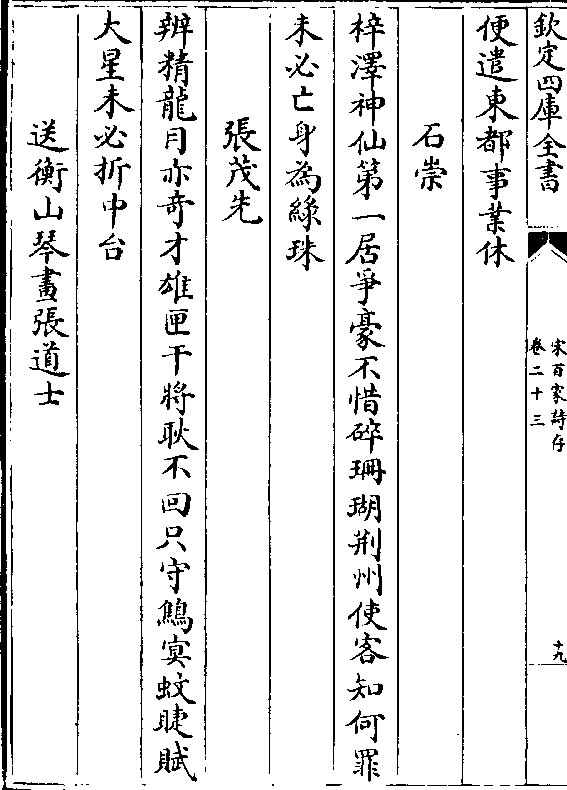 欽定四庫全書
宋百家詩存
卷二十三
十九
便遣東都事業休
石崇
梓澤神仙第一居爭豪不惜碎珊瑚荆州使客知何罪
未必亡身為綠珠
張茂先
辨精龍肉亦竒才雄匣干將耿不回只守鷦寞蚊睫賦
大星未必折中台
送衡山琴畫張道士